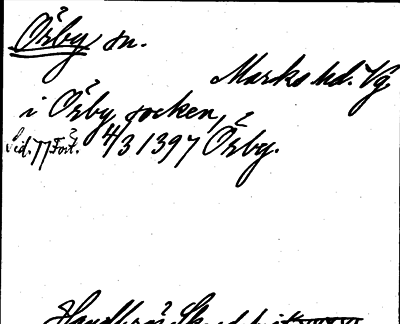 Örby sn.
Marks hd. Vg
i Örby socken,
Sid. 77 Fort. 4/3 1397 Örby.